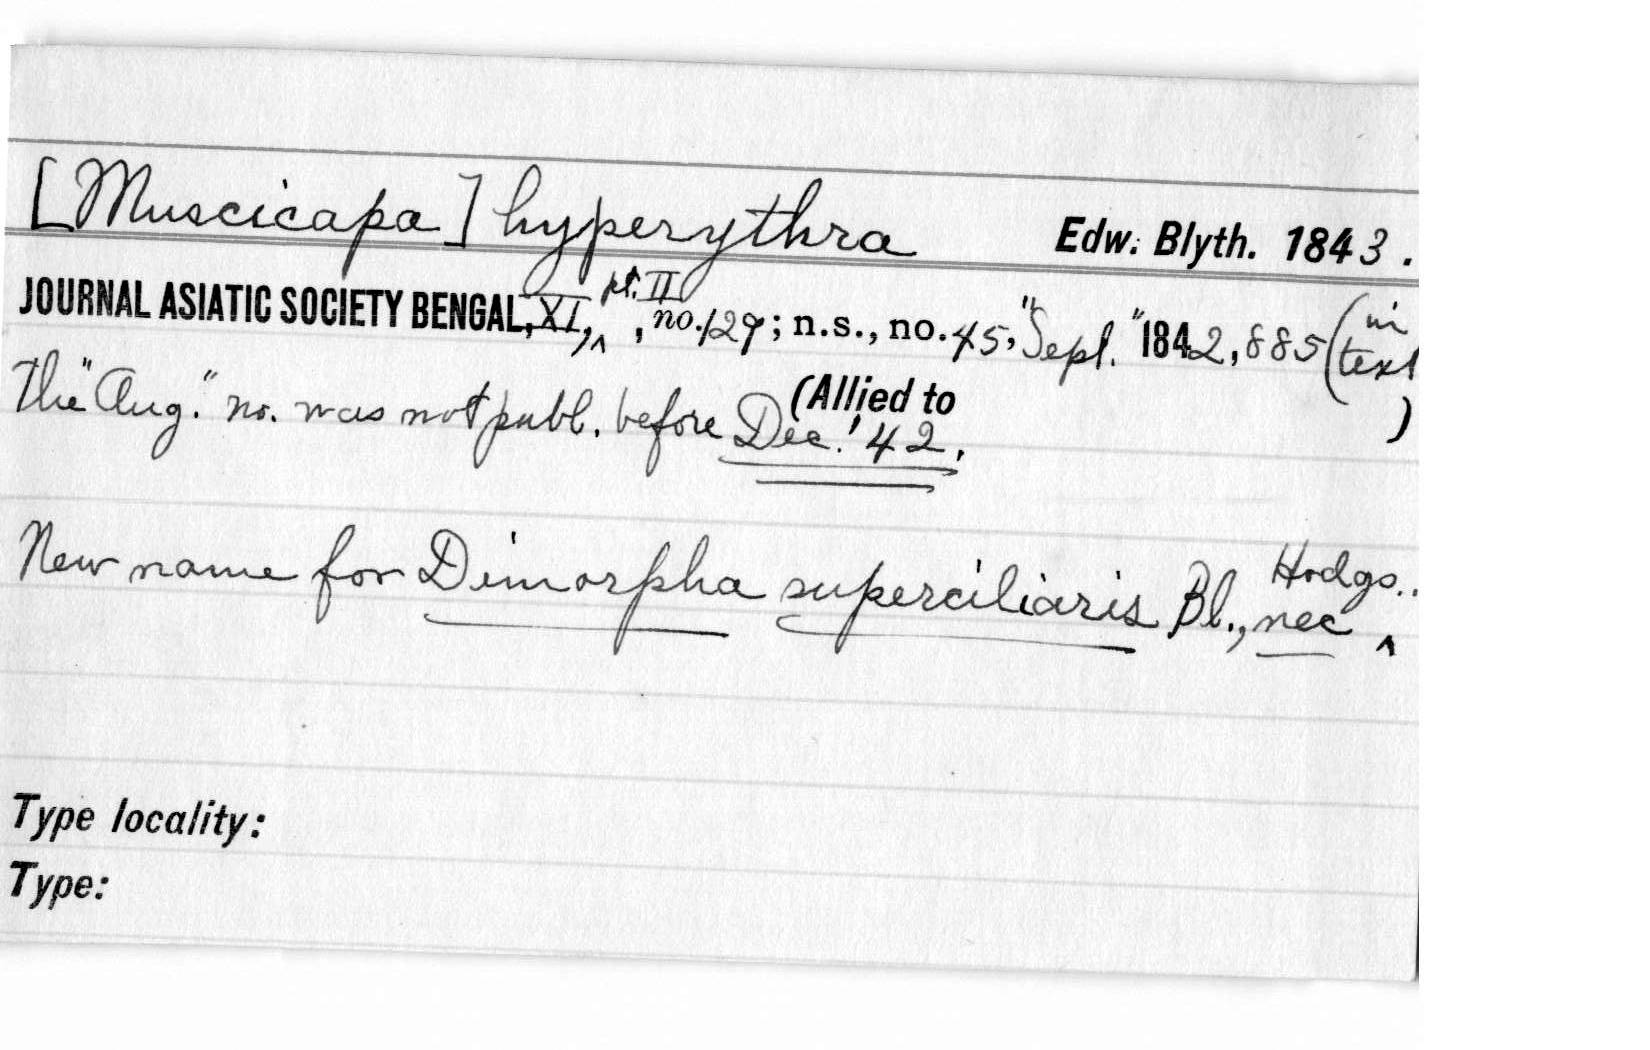 [Muscicapa] hyperythra Edw. Blyth. 1843.
JOURNAL ASIATIC SOCIETY BENGAL, XI, pt. II, no. 129; n.s., no. 45, "Sept." 1842, 885 (in text
The "Aug." no. was not publ. before Dec. '42. (Allied to )
New name for Dimorpha superciliaris Bl., nec Hodgs..
Type locality:
Type: